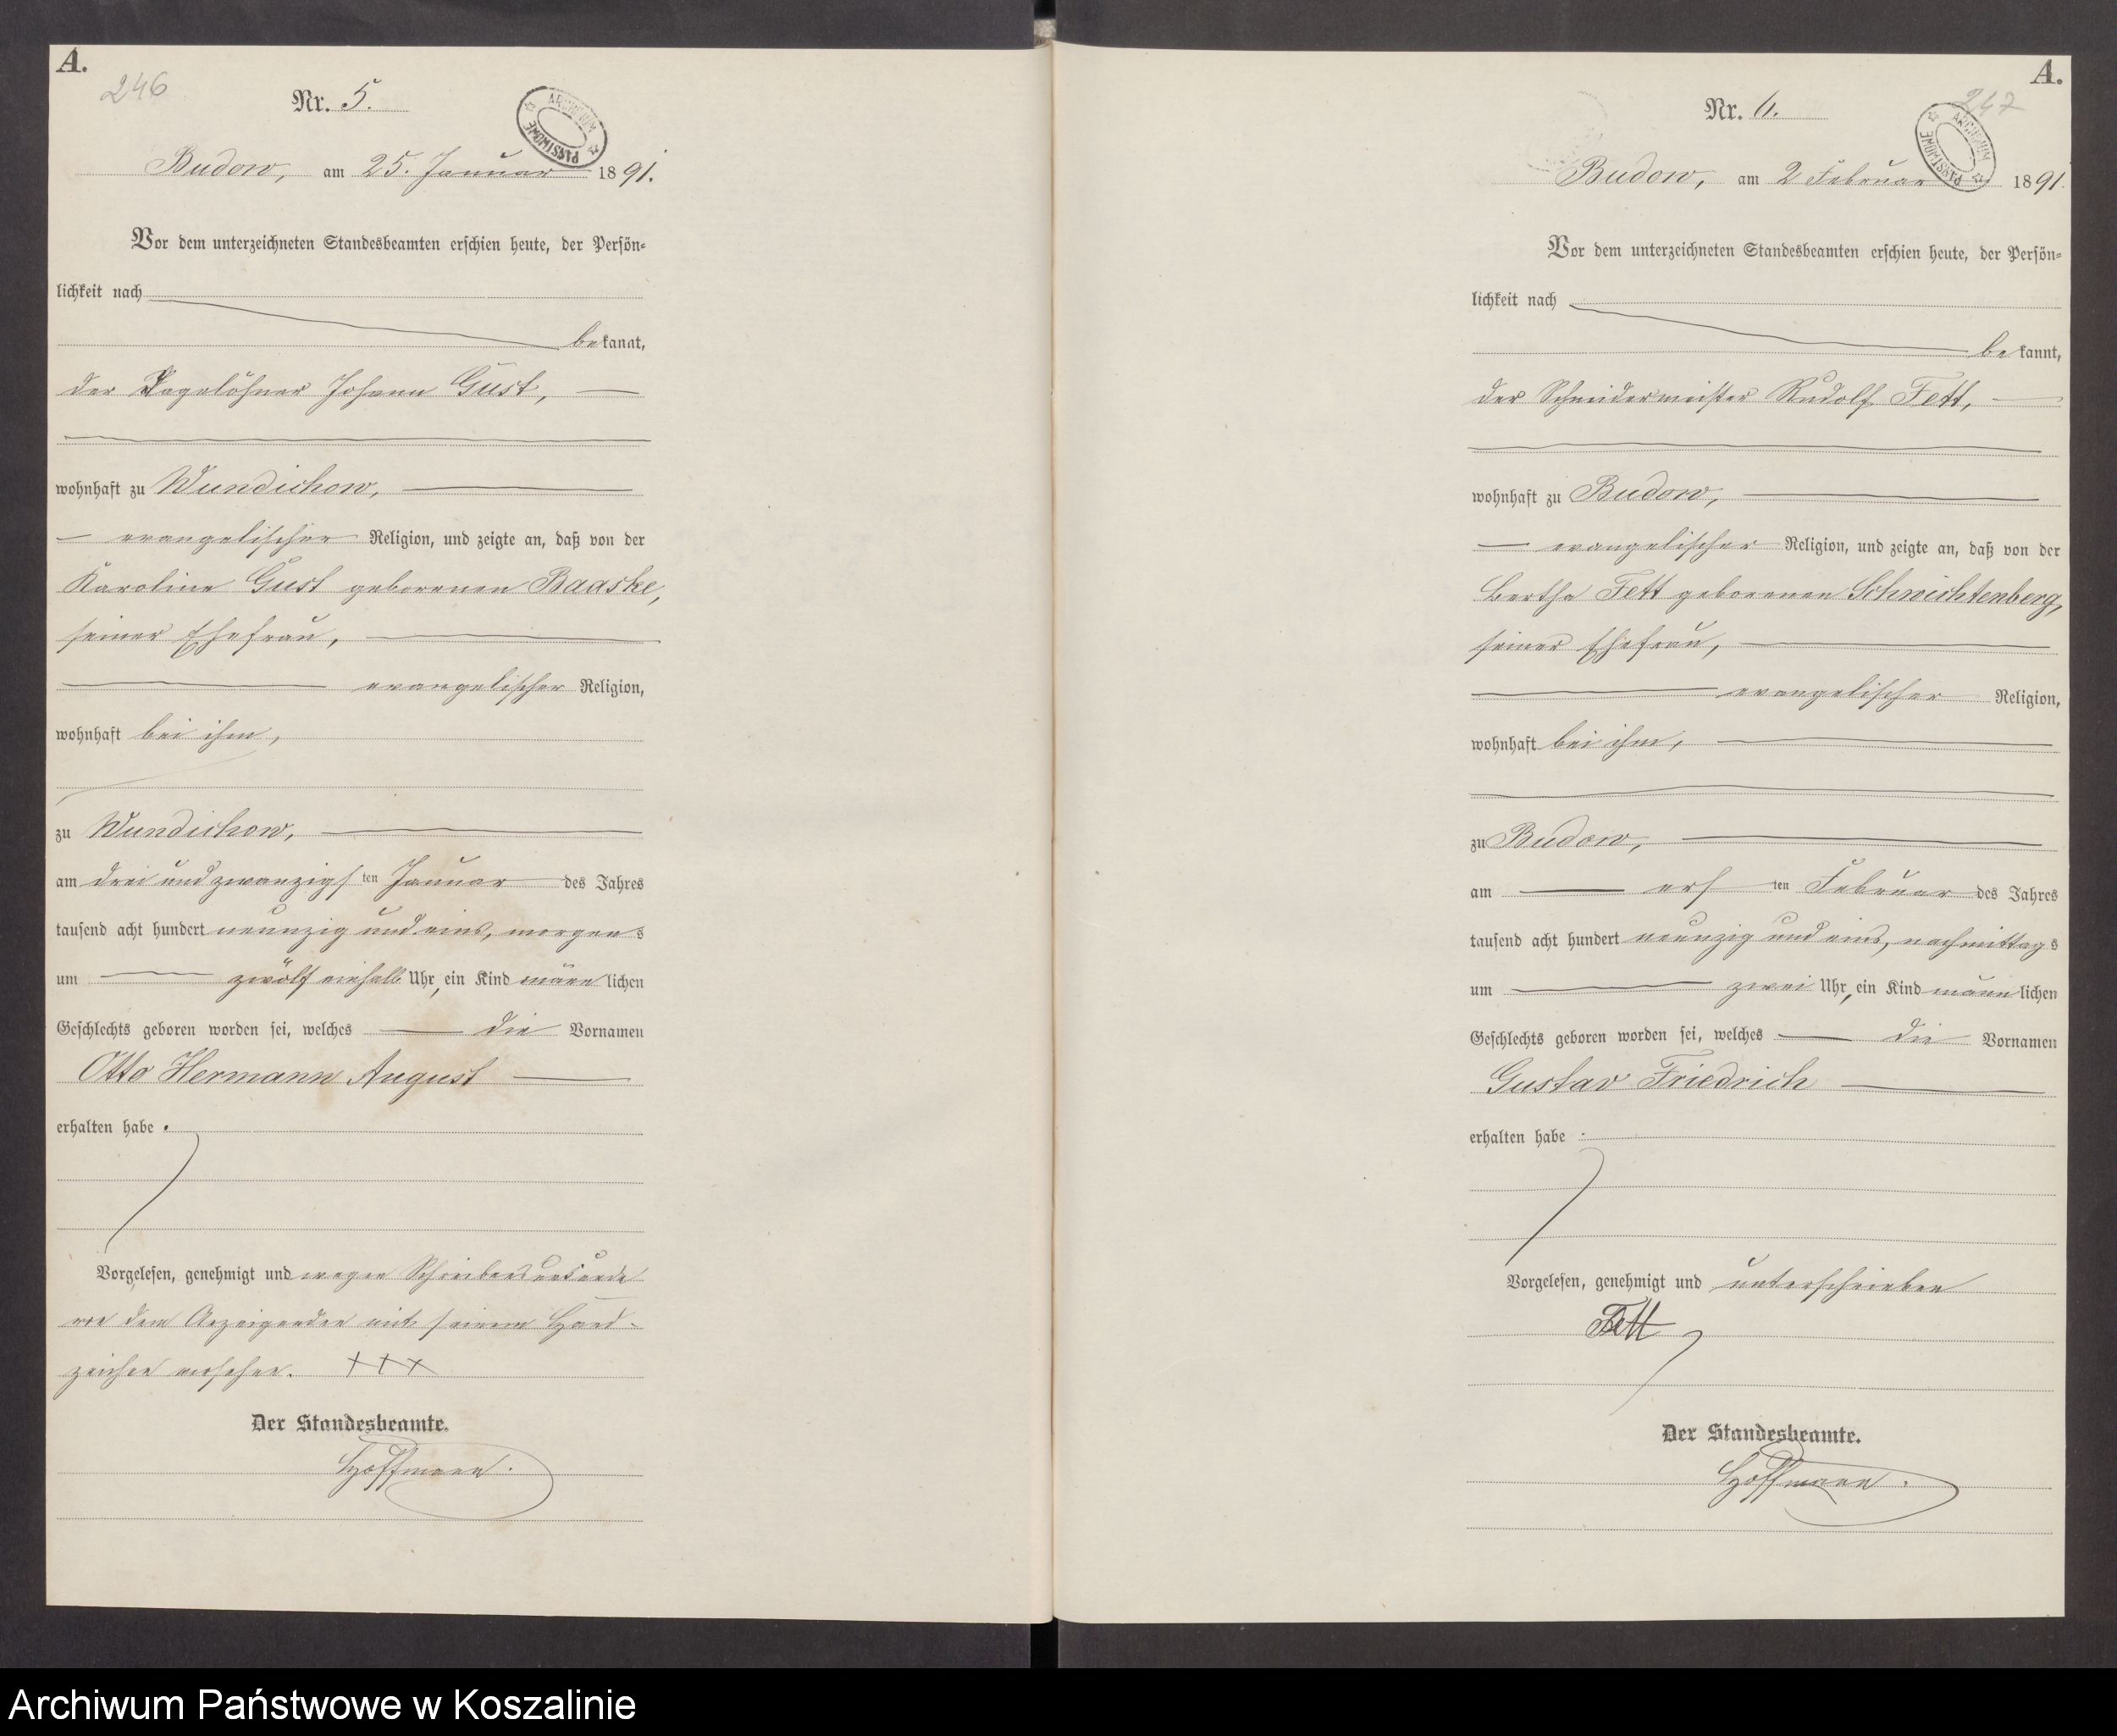 A.
246
Nr. 5.
ARCHIWUM PAŃSTWOWE
Budow, am 25. Januar 1891.
Vor dem unterzeichneten Standesbeamten erschien heute, der Persön-
lichkeit nach
bekannt,
der Tagelöhner Johann Gust,
wohnhaft zu Wundichow,
evangelischer Religion, und zeigte an, daß von der
Karoline Gust geborenen Baaske,
seiner Ehefrau,
evangelischer Religion,
wohnhaft bei ihm,
zu Wundichow,
am drei und zwanzigsten Januar des Jahres
tausend acht hundert neunzig und eins, morgens
um zwölf einhalb Uhr, ein Kind männlichen
Geschlechts geboren worden sei, welches die Vornamen
Otto Hermann August
erhalten habe.
Vorgelesen, genehmigt und wegen Schreibensunkunde
von dem Anzeigenden mit seinem Hand-
zeichen versehen. +++
Der Standesbeamte.
Hoffmann.
A.
247
Nr. 6.
ARCHIWUM PAŃSTWOWE
Budow, am 2 Februar 1891
Vor dem unterzeichneten Standesbeamten erschien heute, der Persön-
lichkeit nach
bekannt,
der Schneidermeister Rudolf Fett,
wohnhaft zu Budow,
evangelischer Religion, und zeigte an, daß von der
Bertha Fett geborenen Schwichtenberg,
seiner Ehefrau,
evangelischer Religion,
wohnhaft bei ihm,
zu Budow,
am ersten Februar des Jahres
tausend acht hundert neunzig und eins, nachmittags
um zwei Uhr, ein Kind männlichen
Geschlechts geboren worden sei, welches die Vornamen
Gustav Friedrich
erhalten habe.
Vorgelesen, genehmigt und unterschrieben
Fett
Der Standesbeamte.
Hoffmann.
Archiwum Państwowe w Koszalinie